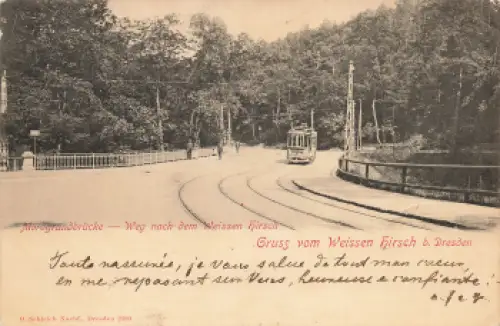 Mordgrundbrücke — Weg nach dem Weissen Hirsch
Gruss vom Weissen Hirsch b. Dresden
Toute rassurée, je vous salue de tout mon cœur,
en me reposant sur vous, heureuse et confiante!